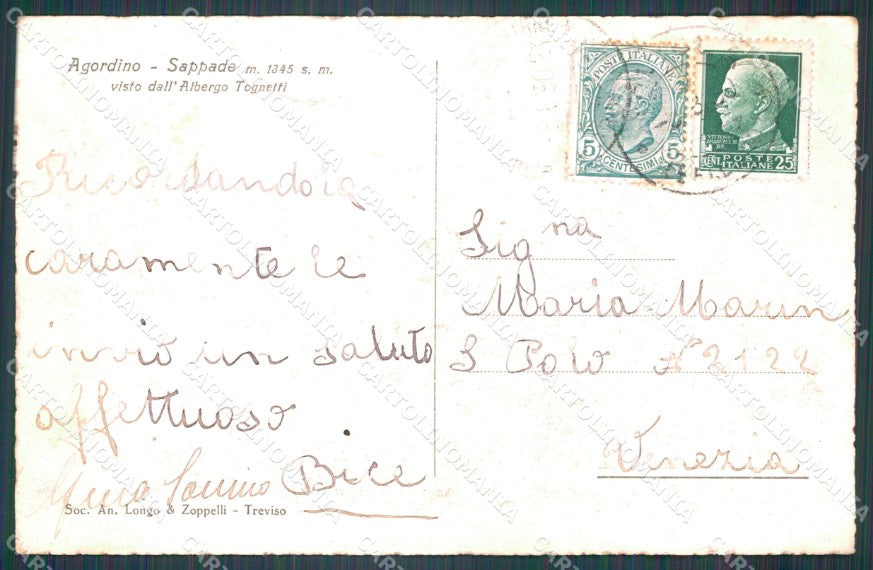 Agordino - Sappade m. 1345 s. m.
visto dall'Albergo Tognetti
Ricordandola
caramente le
invio un saluto
affettuoso
Bice
Soc. An. Longo & Zoppelli - Treviso
POSTE ITALIANE
5 CENTESIMI 5
VITTORIO
EMANUELE III
RE
CENT POSTE 25
ITALIANE
Sig na
Maria Marin
S Polo N° 2122
Venezia
CARTOLINOMANIA